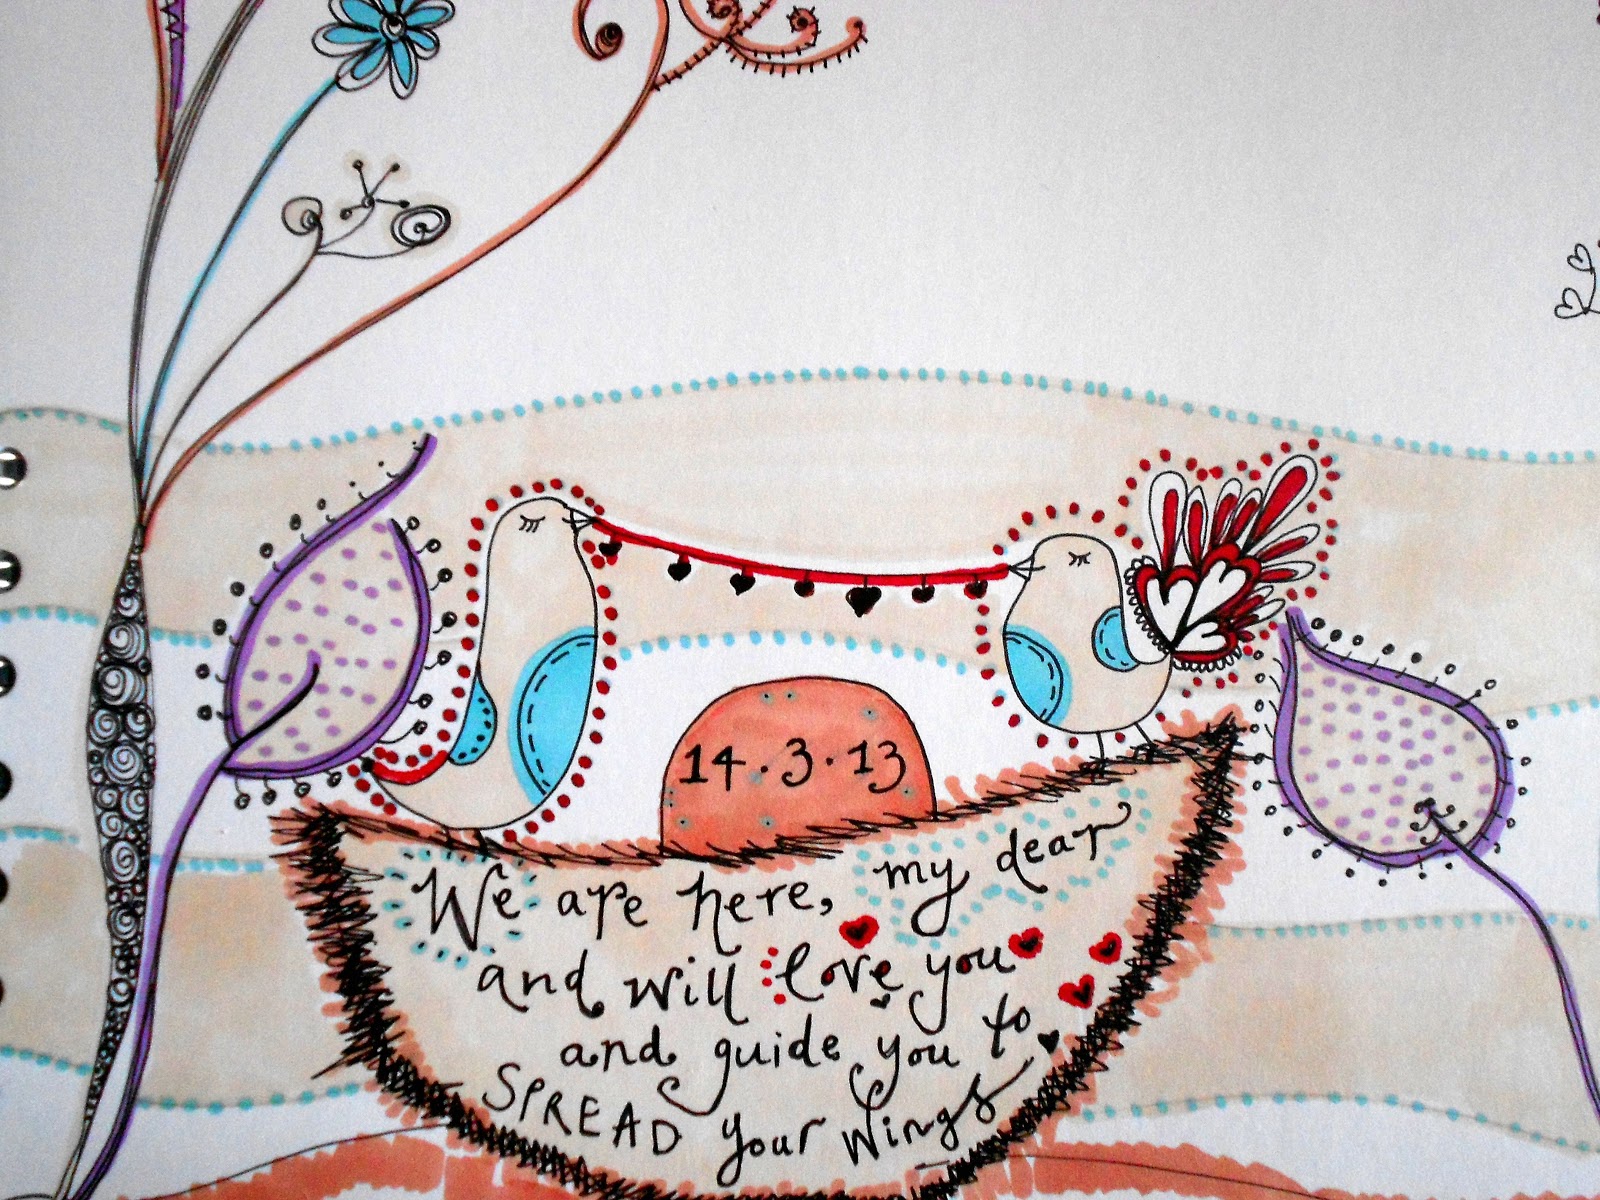 14.3.13
We are here, my dear
and will love you
and guide you to
SPREAD your wings